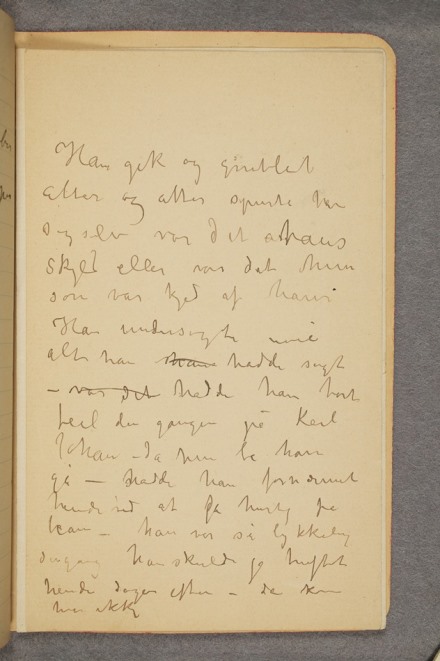 Han gik og grublet
atter og atter spurte han
sig selv var det hans
skyld eller var det hun
som var kjed af ham
Han undersøgte nøie
alt han hadde sagt
– var det hadde han havt
feil den gangen på Karl
Johan – da hun lo ham
gå – hadde han fornærmet
hende ved at gå hurtig fra
– han var så lykkelig
dengang han skulde
hende dagen efter – da kom
hun ikke